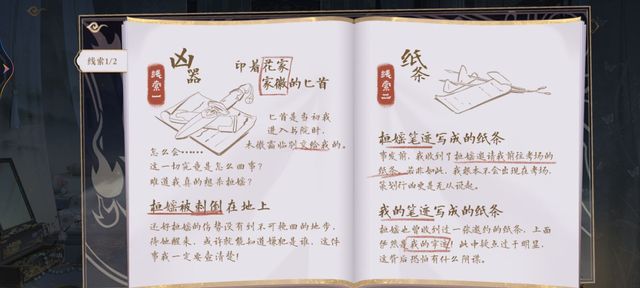 线索1/2
凶器
线索一
印着花家
家徽的匕首
匕首是当初我
进入书院时，
木微霜临别交给我的。
怎么会······
这一切究竟是怎么回事？
难道我真的想杀桓媱？
桓媱被刺倒在地上
还好桓媱的伤势没有到不可挽回的地步，
待她醒来，或许就能知道嫌犯是谁，这件
事我一定要查清楚！
纸条
线索二
桓媱笔迹写成的纸条
事发前，我收到了桓媱邀请我前往考场的
纸条，若非如此，我根本不会出现在考场，
策划行凶更是无从说起。
我的笔迹写成的纸条
桓媱也曾收到过一张邀约的纸条，上面
俨然是我的字迹！此中疑点过于明显，
这背后恐怕有什么阴谋。